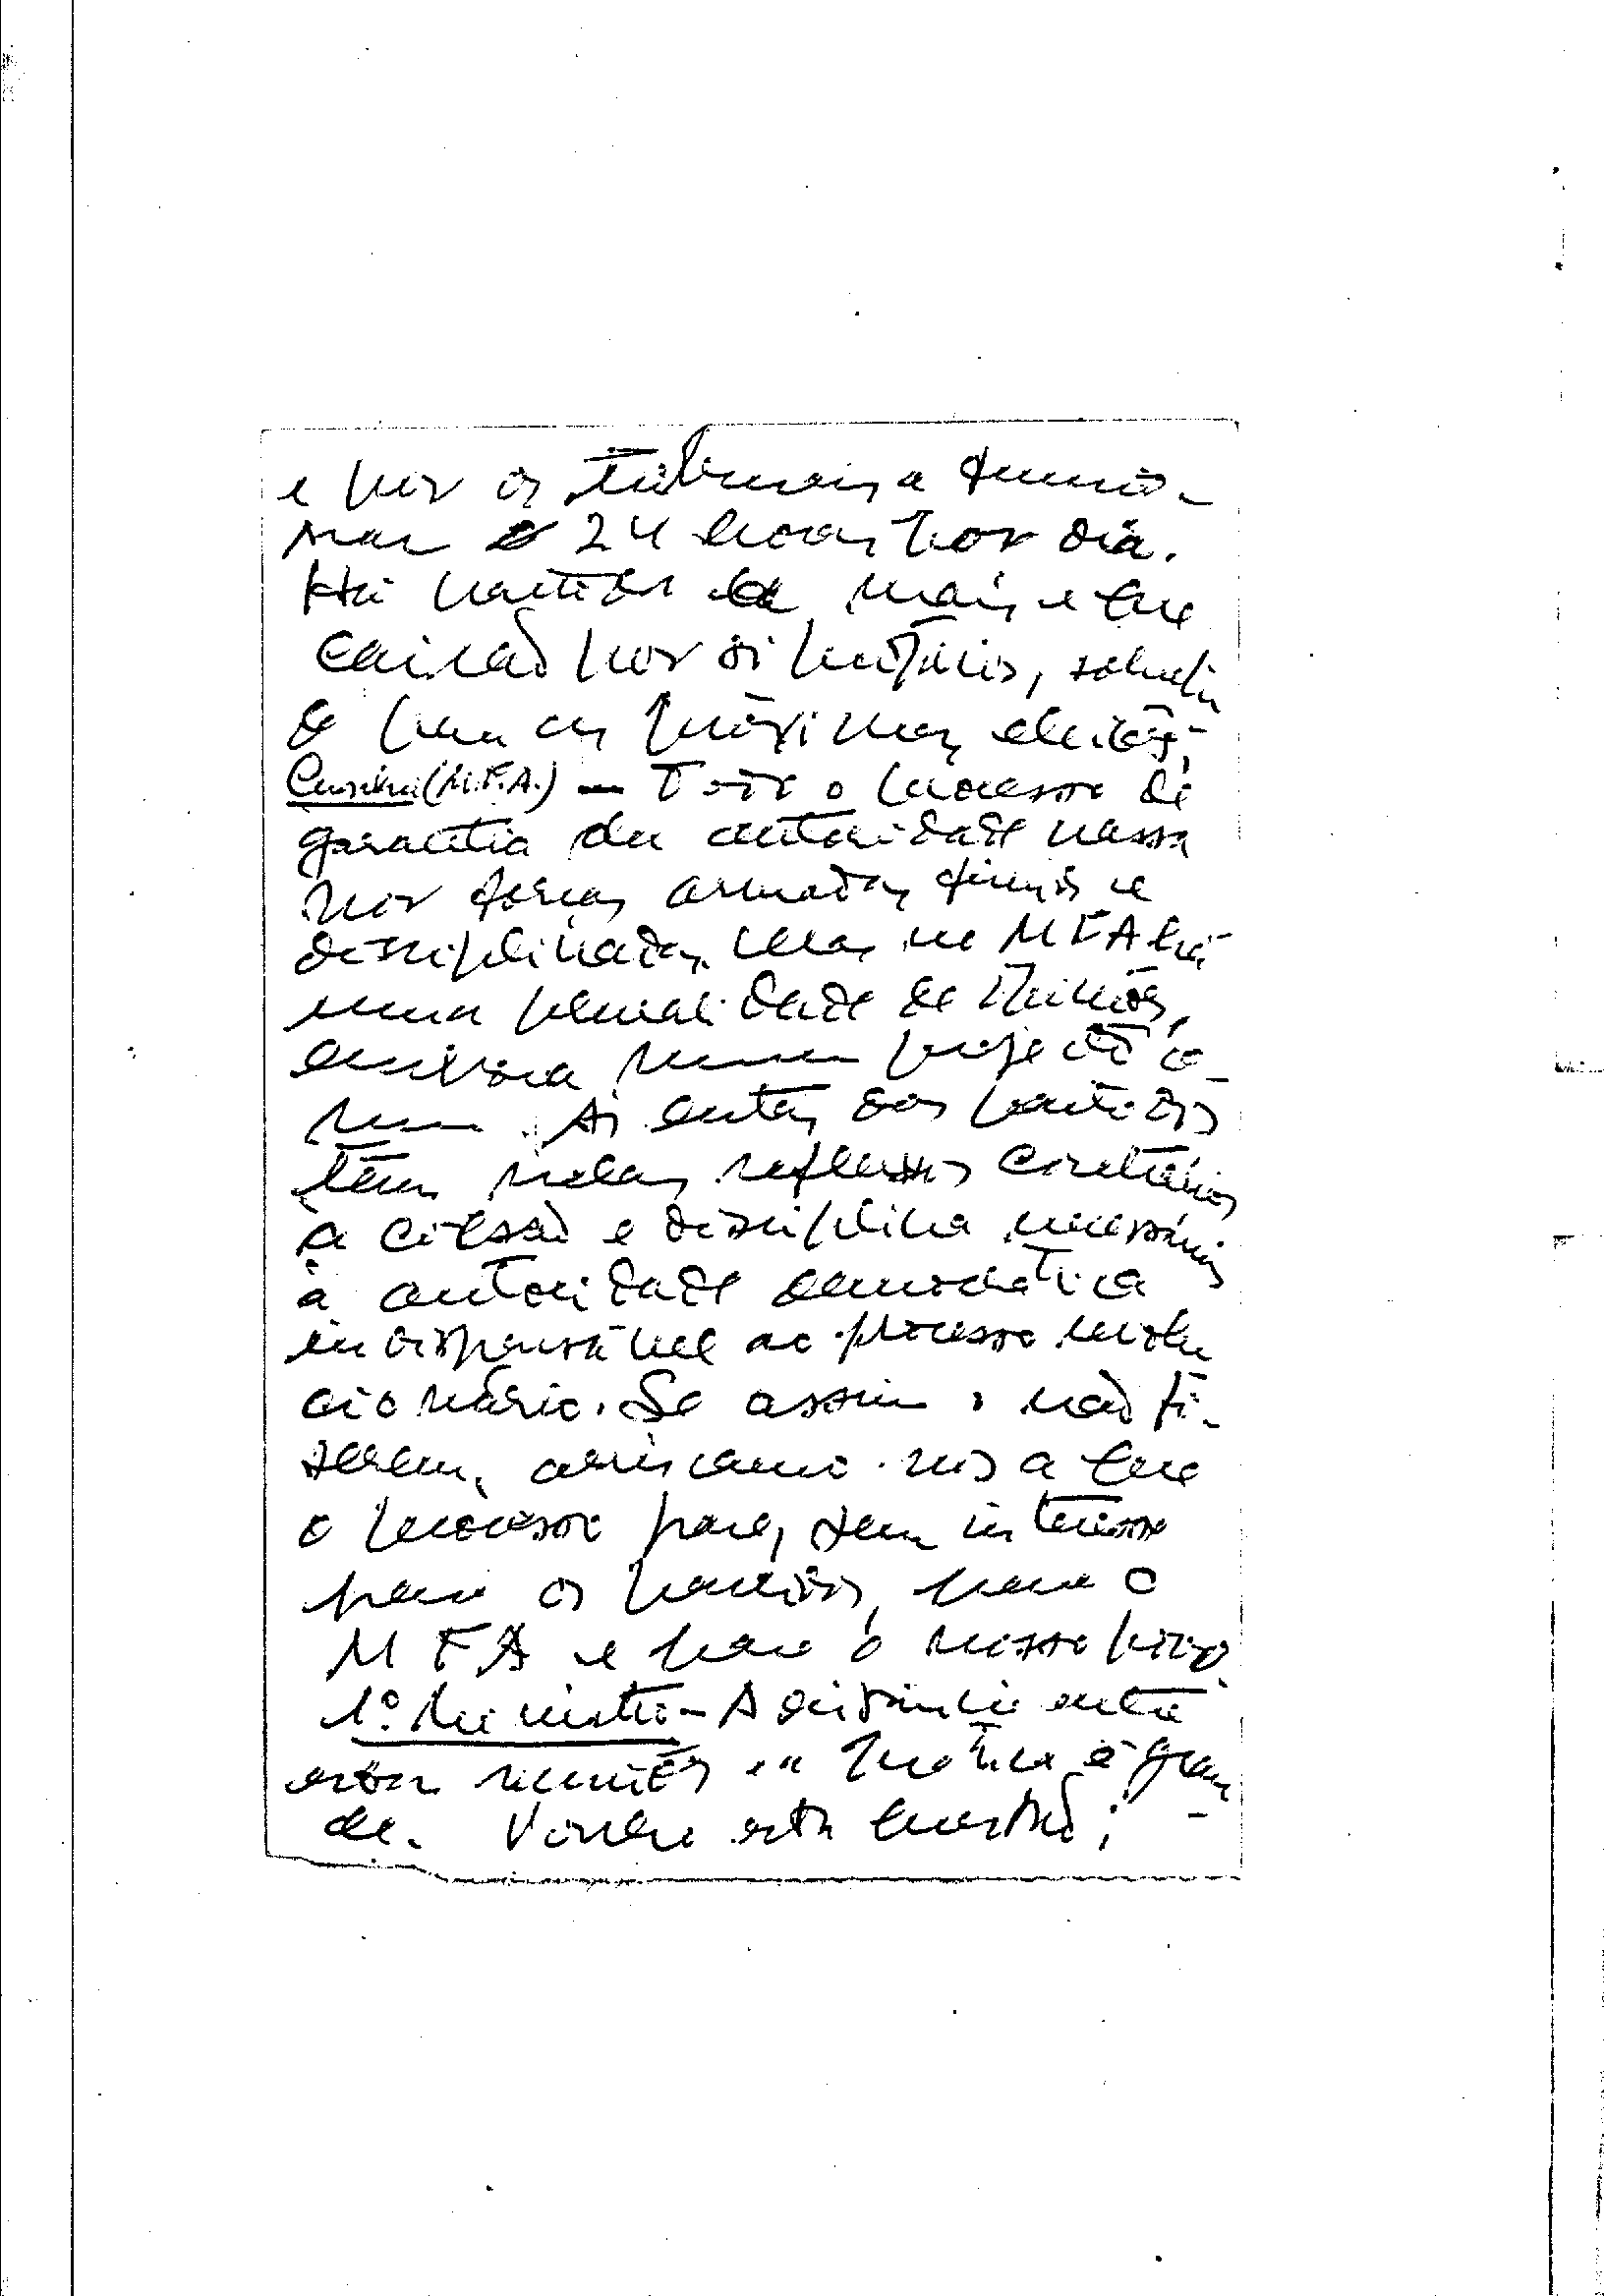 e por os tribunais a funcio-
nar 24 horas por dia.
Há partidos a mais e que
cairão por si próprios, sobretu-
do para as próximas eleições;
Cunha (M.F.A.) — Todo o processo de
garantia da autoridade passa
por forças armadas firmes e
disciplinadas. Mas no MFA há
uma pluralidade de opiniões,
embora num projecto co-
mum. As lutas dos partidos
têm nelas reflexos contrários
a coesão e disciplina necessárias
à autoridade democrática
indispensável ao processo revolu
cionário. Se assim o não fi-
zerem, arriscamo-nos a que
o processo pare, sem interesse
para os partidos, para o
MFA e para o nosso povo.
1º. Ministro - A distância entre
estas reuniões e a prática é gran-
de. Ponho esta questão: